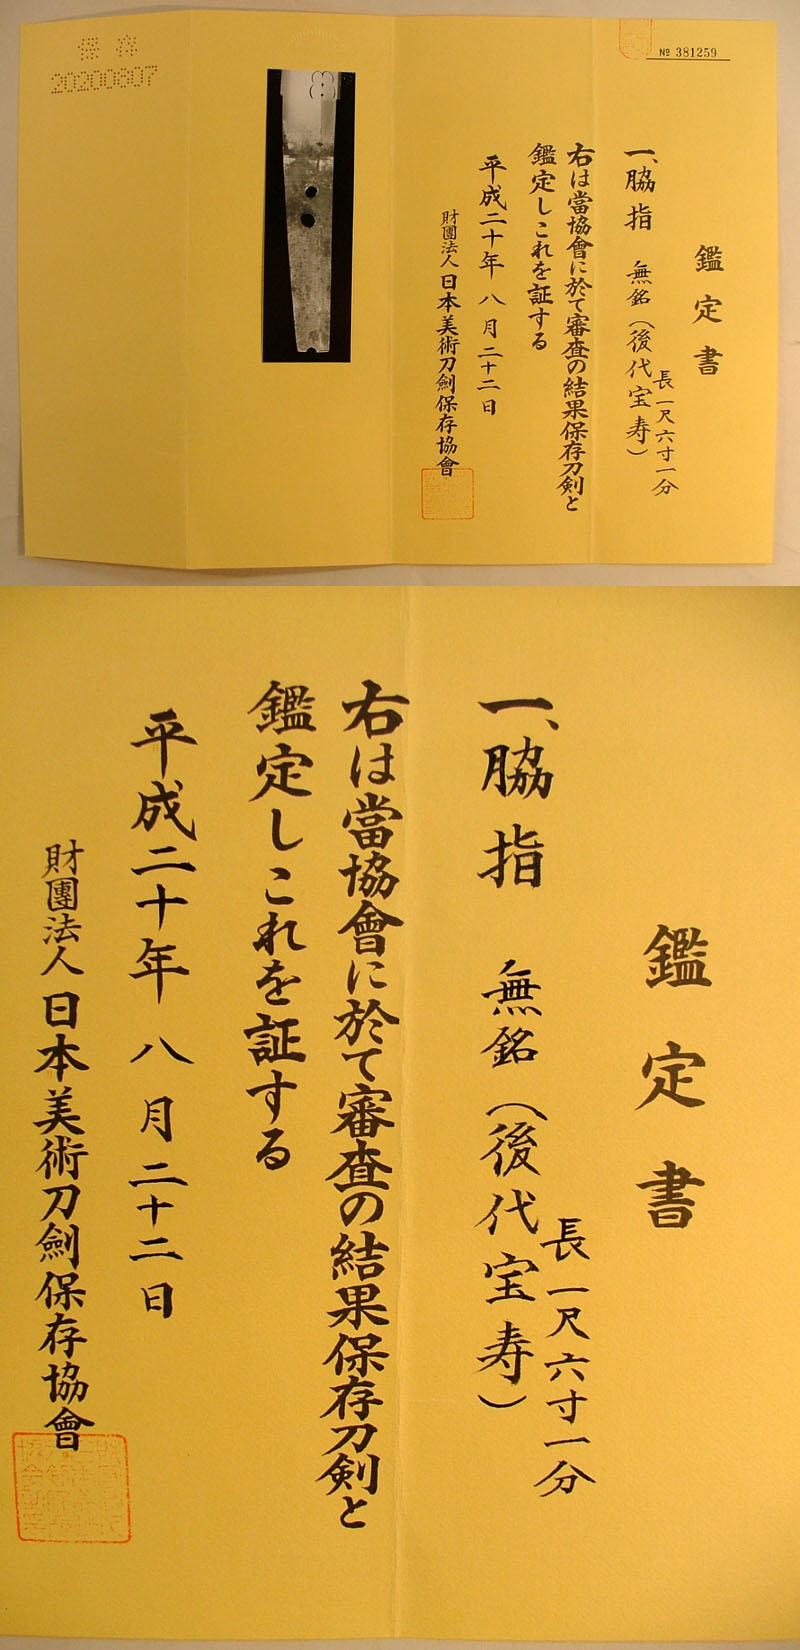 保存
20200807
№ 381259
鑑定書
一、脇指 無銘（後代宝寿）
長一尺六寸一分
右は當協會に於て審査の結果保存刀剣と
鑑定しこれを証する
平成二十年 八月 二十二日
財團法人 日本美術刀劍保存協會
鑑定書
一、脇指 無銘（後代宝寿）
長一尺六寸一分
右は當協會に於て審査の結果保存刀剣と
鑑定しこれを証する
平成二十年 八月 二十二日
財團法人 日本美術刀劍保存協會